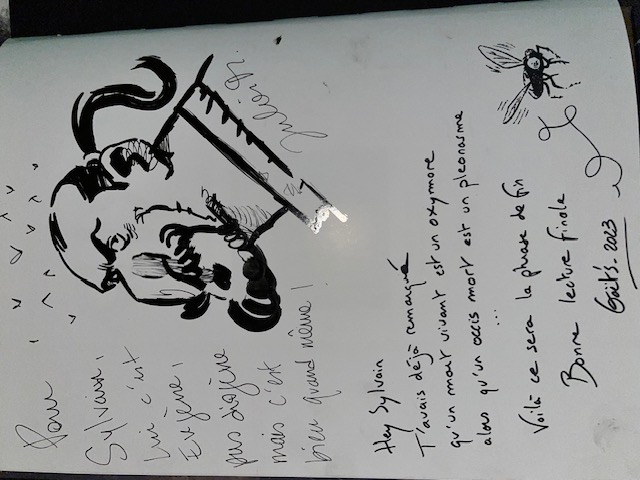 Pour
Sylvain,
Lui c'est
Eugène,
pas diogène
mais c'est
bien quand même !
Hey Sylvain
T'avais déjà remarqué
qu'un mort vivant est un oxymore
alors qu'un occis mort est un pleonasme
...
Voilà ce sera la phrase de fin
Bonne lecture finale
2023